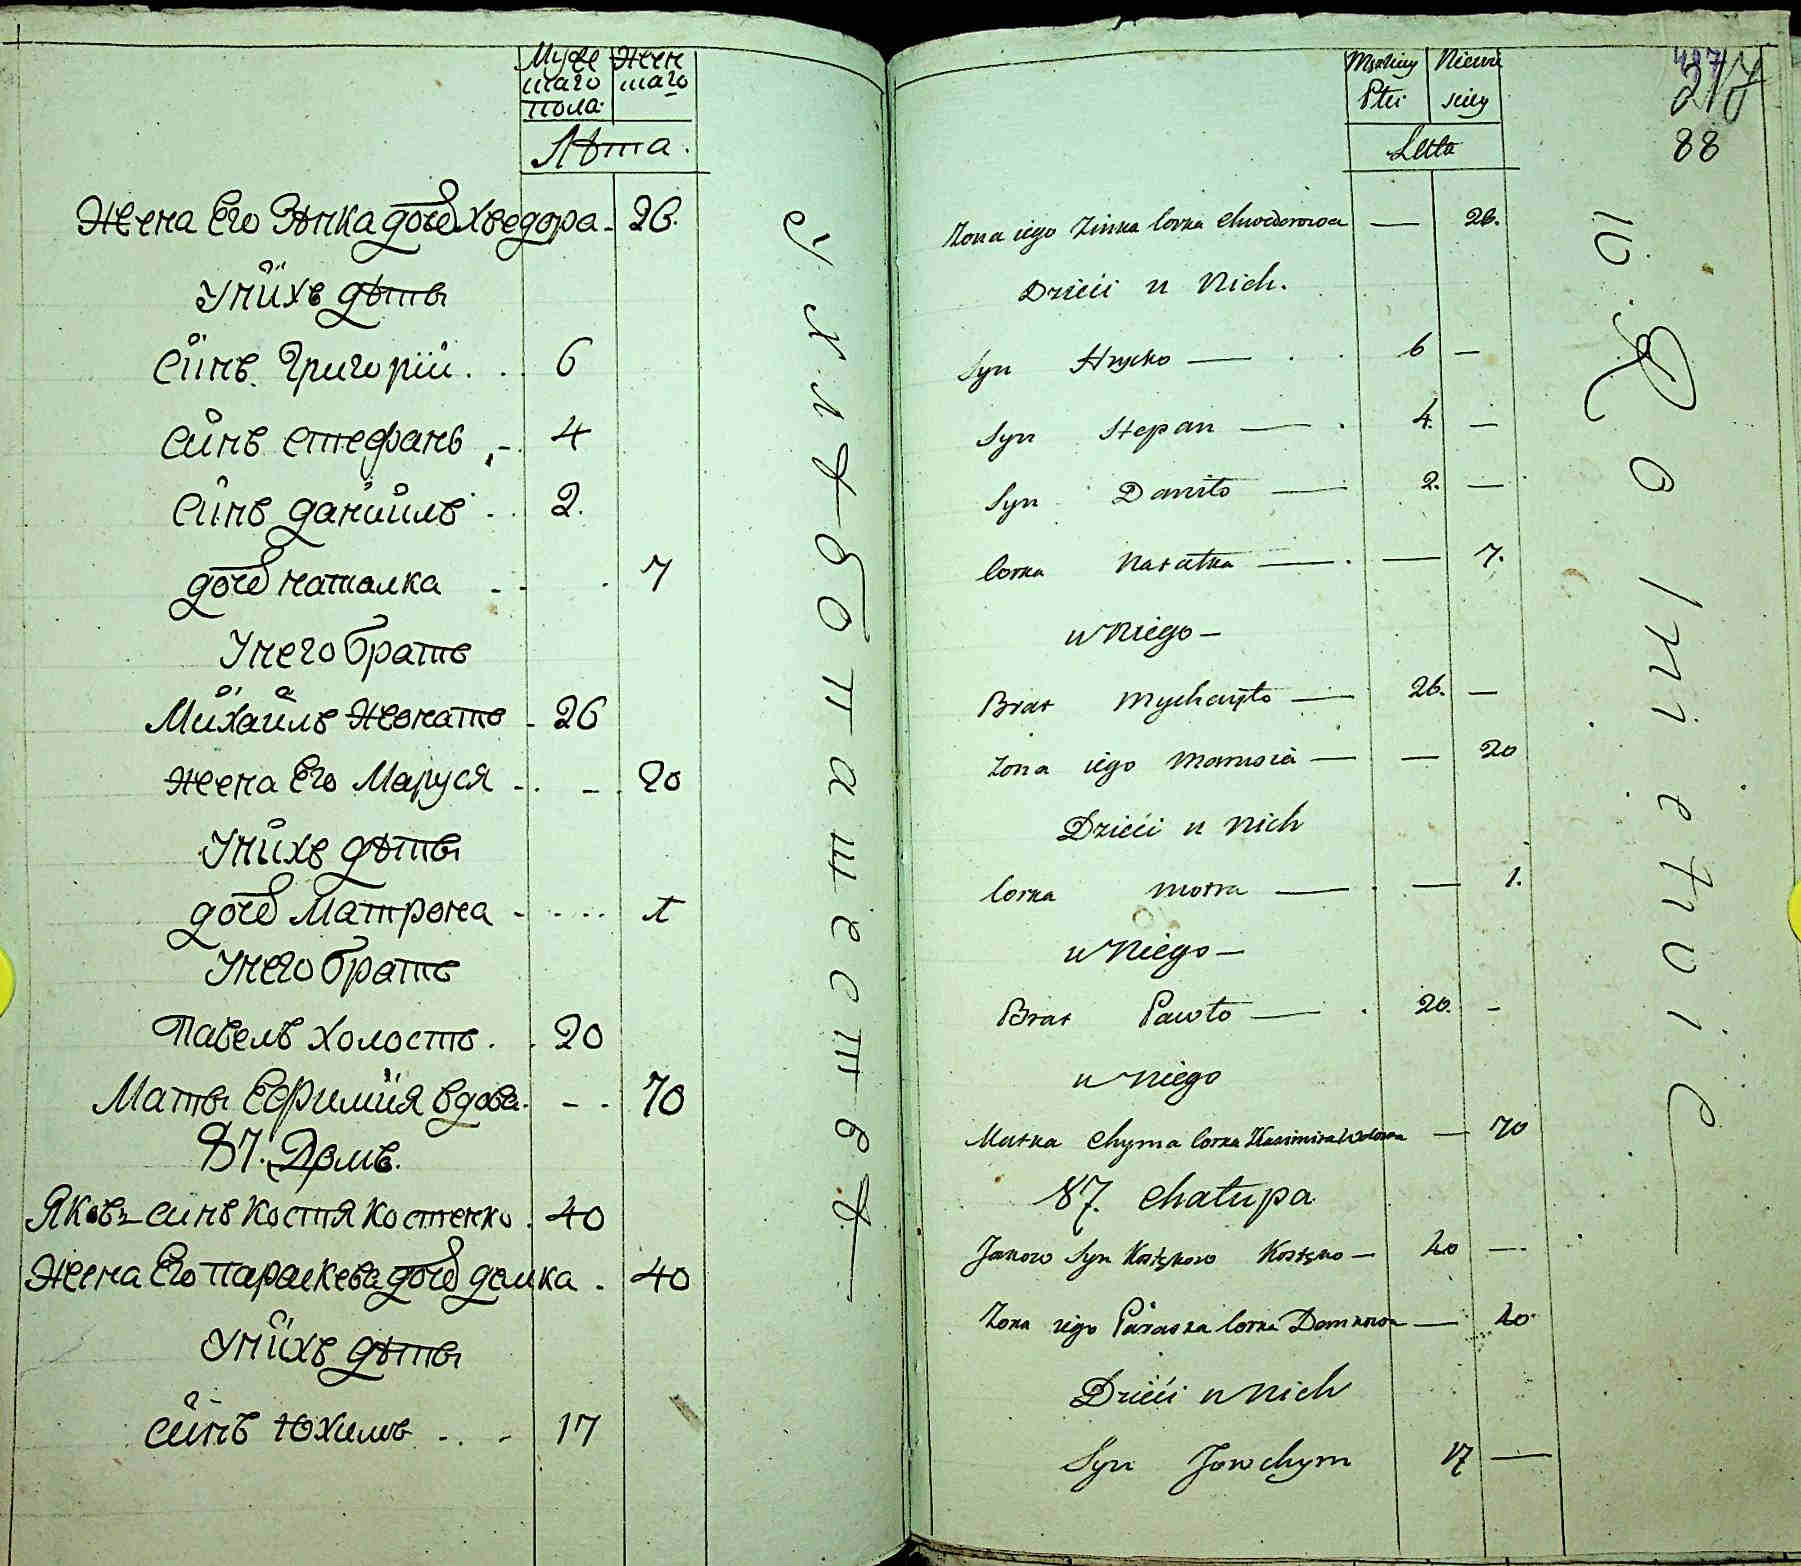 Муже Жен
шаго шаго
пола
Лѣта.
Жена Его Зѣнка дочь Хведора. 26.
Унихъ дѣти
Синъ Григорій. . 6
Синъ Стефанъ . - 4
Синъ Даніилъ . . 2.
дочь Наталка - - . 7
Унего братъ
Михаилъ Женатъ - 26
Жена Его Маруся - . - 20
Унихъ дѣти
дочь Матрона - . . . 1
Унего братъ
Павелъ холостъ . . 20
Мати Ефимия вдова. - - 70
87. Домъ.
Яковъ синъ Костя Костенко . 40
Жена Его Параскева дочь Домка . 40
Унихъ дѣти
Синъ Юхимъ . . - 17
Męzkiey Niewie
Płci sciey
Latta
217
88
Zona iego Zinka Corka Chwedorowa — 26.
Dzieci u Nich.
Syn Hryćko — 6 —
Syn Stepan — 4. —
Syn Daniło — 2. —
Corka Natałka — — 7.
u Niego —
Brat Mychayło — 26. —
Zona iego Marusia — — 20
Dzieci u Nich
Corka Motra — — 1.
u Niego —
Brat Pawło — 20. -
u Niego
Matka Chyma Corka Kazimira Wdowa — 70
87. Chałupa
Jakow Syn Kostkow Kostęko — 40 —
Zona iego Paraska Corka Domkowa — 40
Dzieci u Nich
Syn Jowchym 17 —